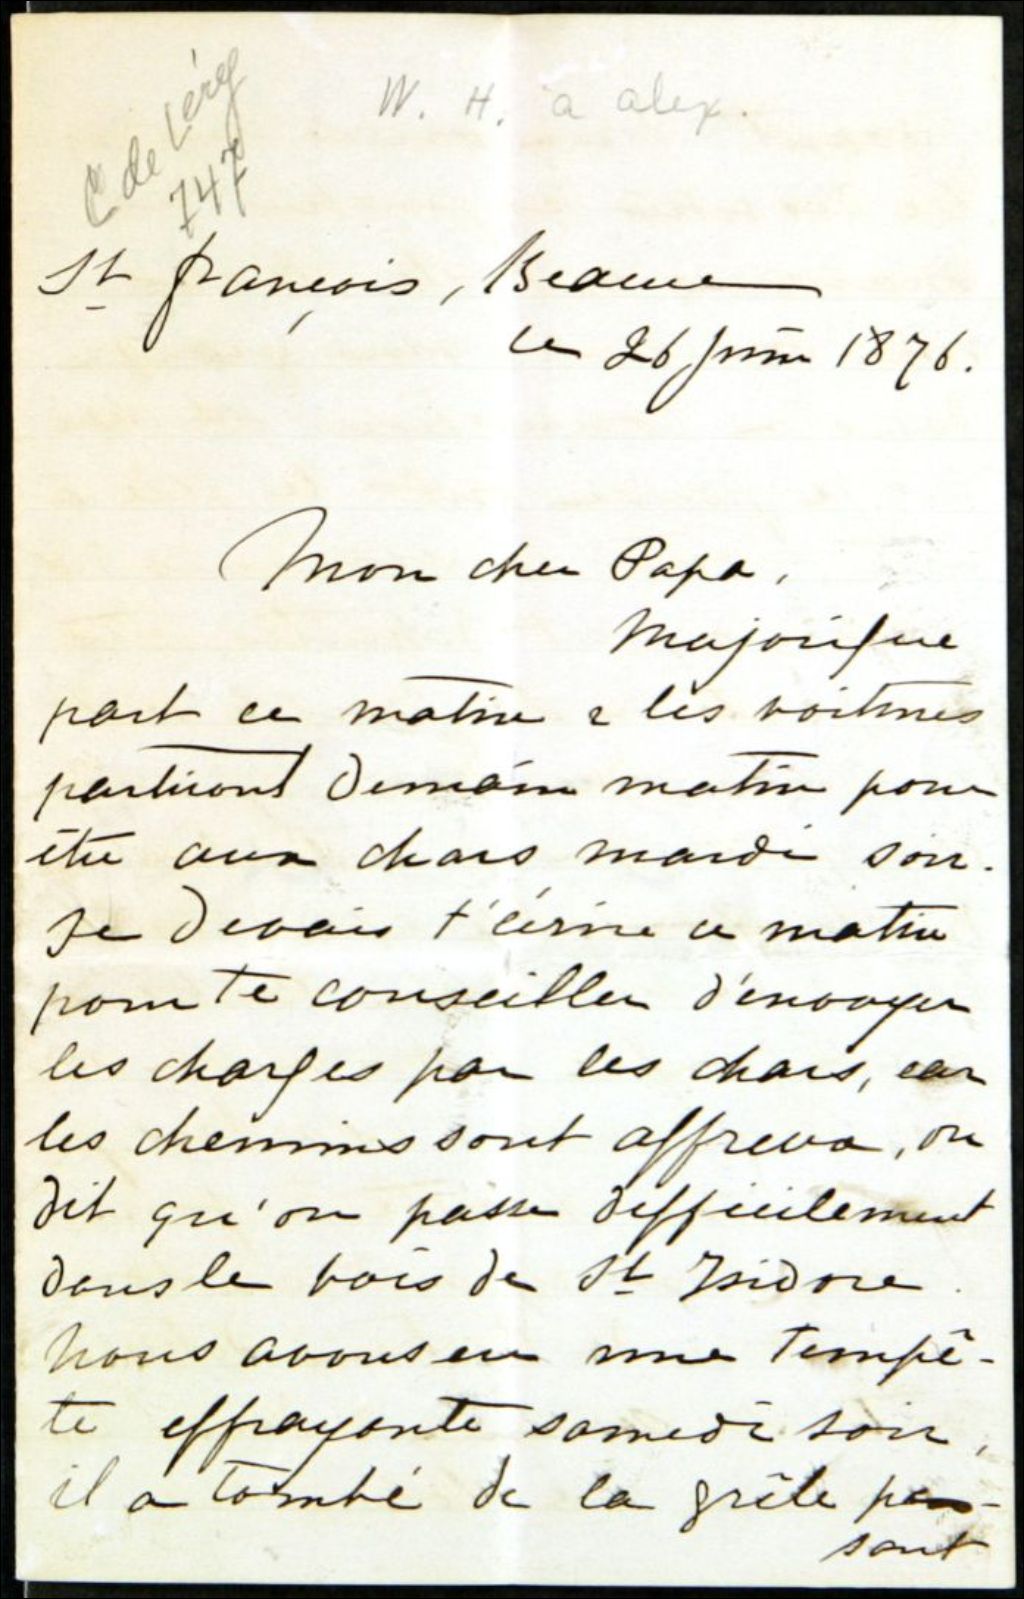 C de Léry
747
W. H. à alex.
St François, Beauce
ce 26 Juin 1876.
Mon cher Papa,
Majorique
part ce matin & les voitures
partiront demain matin pour
être aux chars mardi soir.
Je devais t'écrire ce matin
pour te conseiller d'envoyer
les charges par les chars, car
les chemins sont affreux, on
dit qu'on passe difficilement
dans le bois de St Isidore.
Nous avons eu une tempê-
te effrayante samedi soir,
il a tombé de la grêle pe-
sant